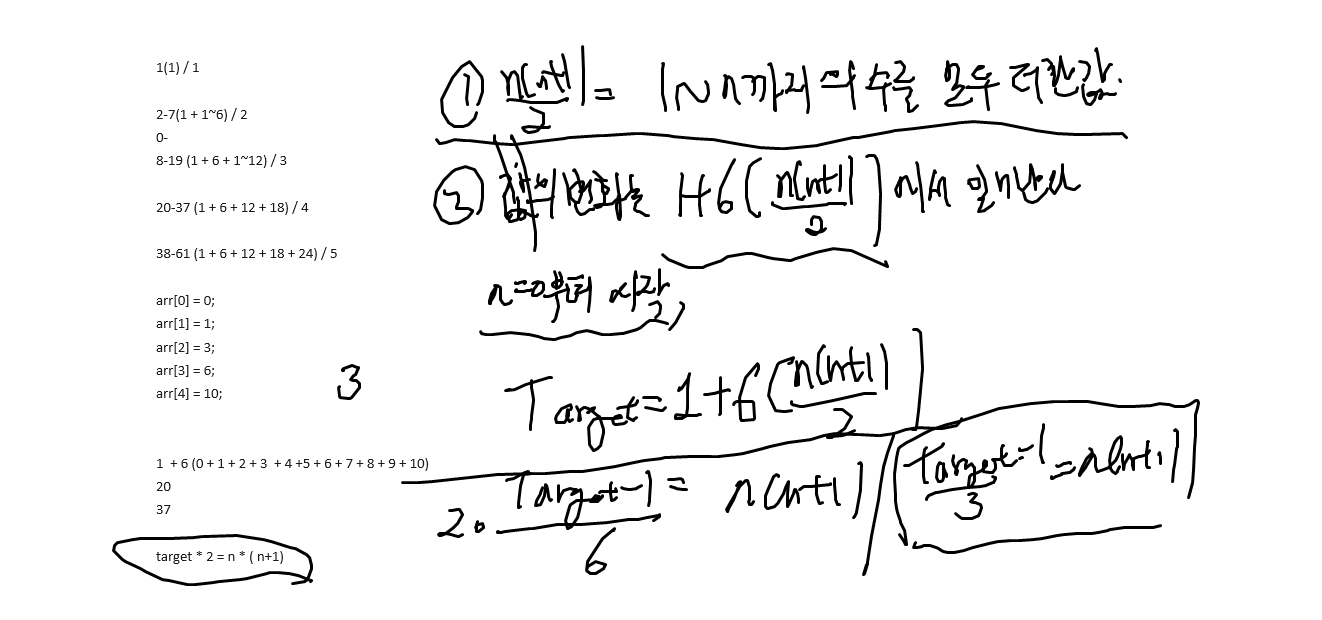 1(1) / 1
2-7(1 + 1~6) / 2
0-
8-19 (1 + 6 + 1~12) / 3
20-37 (1 + 6 + 12 + 18) / 4
38-61 (1 + 6 + 12 + 18 + 24) / 5
arr[0] = 0;
arr[1] = 1;
arr[2] = 3;
arr[3] = 6;
arr[4] = 10;
3
1 + 6 (0 + 1 + 2 + 3 + 4 +5 + 6 + 7 + 8 + 9 + 10)
20
37
target * 2 = n * ( n+1)
① n(n+1)/2 = 1~n까지의 수를 모두 더한값.
② 값의 변화는 1+6(n(n+1)/2)에서 일어난다
n=0부터 시작,
Target=1+6(n(n+1)/2)
2. Target-1/6 = n(n+1)
Target-1/3 = n(n+1)